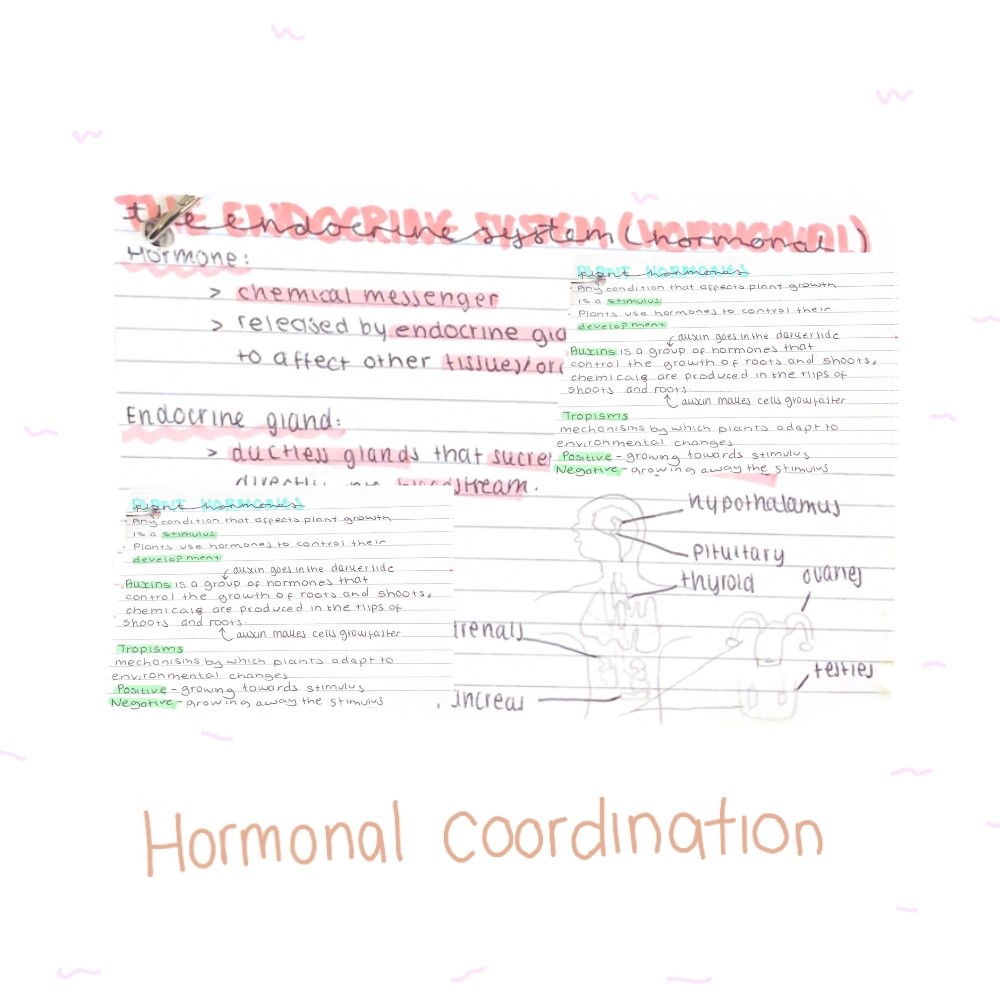 the endocrine system (hormonal)
Hormone:
> chemical messenger
> released by endocrine
to affect other tissues/
Endocrine gland:
> ductless glands that
directly bloodstream.
Plant hormones
Any condition that affects plant growth
is a stimulus
· Plants use hormones to control their
development
auxin goes in the darker side
Auxins is a group of hormones that
control the growth of roots and shoots,
chemicals are produced in the tips of
shoots and roots.
auxin makes cells grow faster
Tropisms
mechanisms by which plants adapt to
environmental changes
Positive - growing towards stimulus
Negative - growing away the stimulus
Plant hormones
· Any condition that affects plant growth
is a stimulus
· Plants use hormones to control their
development
auxin goes in the darker side
Auxins is a group of hormones that
control the growth of roots and shoots,
chemicals are produced in the tips of
shoots and roots.
auxin makes cells grow faster
Tropisms
mechanisms by which plants adapt to
environmental changes
Positive - growing towards stimulus
Negative - growing away the stimulus
hypothalamus
pituitary
thyroid
ovaries
testies
Hormonal coordination